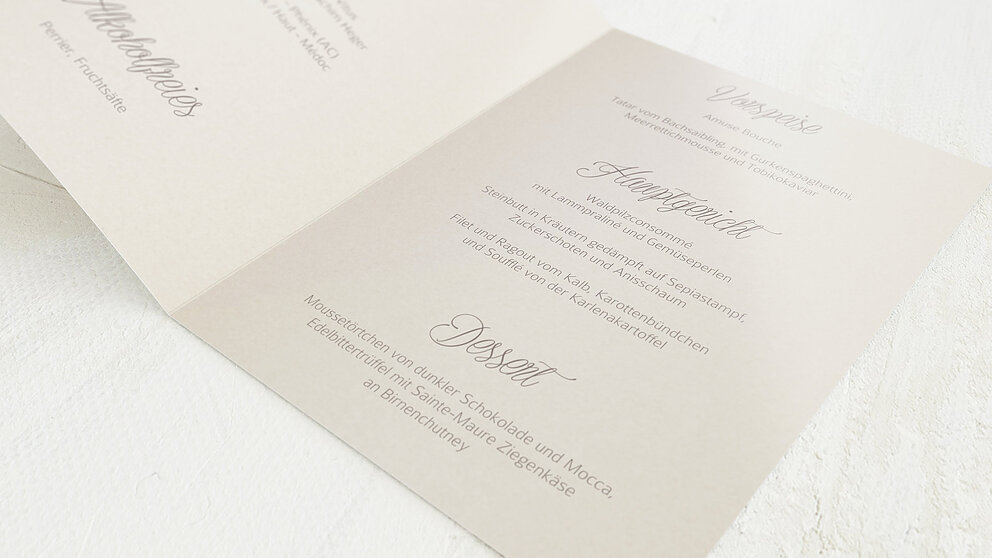 Joachim Heger
– Phénix (AC)
/ Haut – Médoc
Alkoholfreies
Perrier, Fruchtsäfte
Vorspeise
Amuse Bouche
Tatar vom Bachsaibling, mit Gurkenspaghettini,
Meerrettichmousse und Tobikokaviar
Hauptgericht
Waldpilzconsommé
mit Lammpraliné und Gemüseperlen
Steinbutt in Kräutern gedämpft auf Sepiastampf,
Zuckerschoten und Anisschaum
Filet und Ragout vom Kalb, Karottenbündchen
und Soufflé von der Karlenakartoffel
Dessert
Moussetörtchen von dunkler Schokolade und Mocca,
Edelbittertrüffel mit Sainte-Maure Ziegenkäse
an Birnenchutney